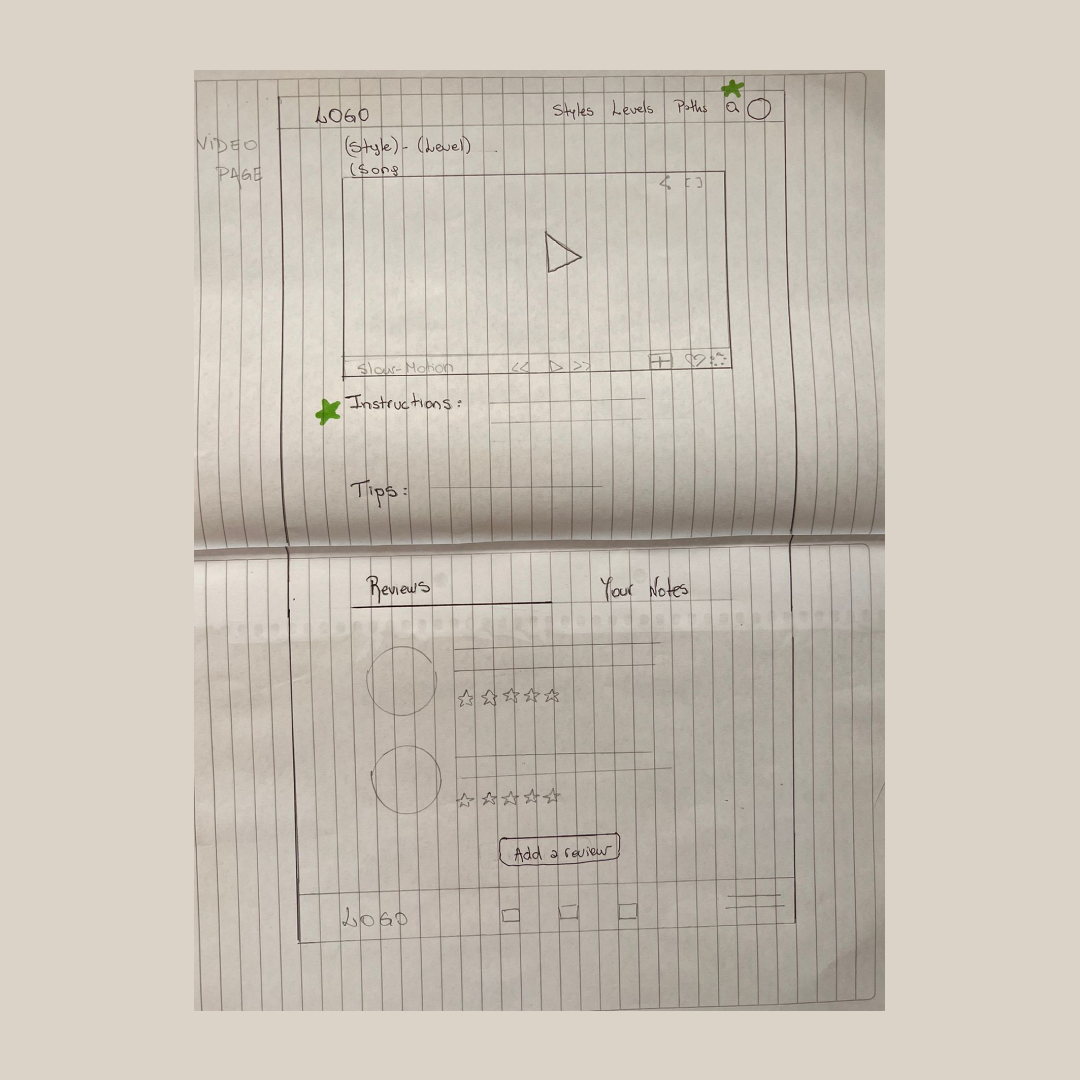 VIDEO
PAGE
LOGO
Styles Levels Paths
(Style) - (Level)
(Song
Slow-Motion
Instructions:
Tips:
Reviews Your Notes
Add a review
LOGO